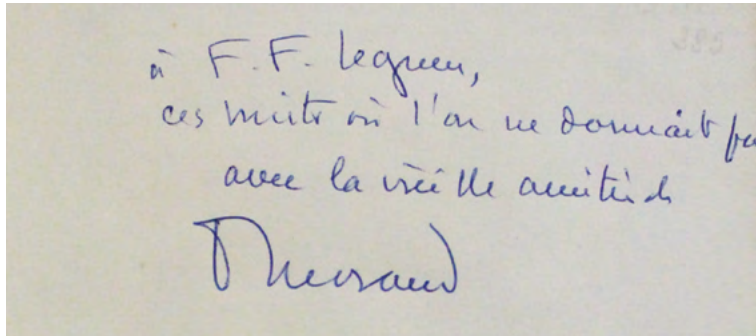 à F.F. Legueu,
ces nuits où l'on ne dormait pa
avec la vieille amitié de
PMorand